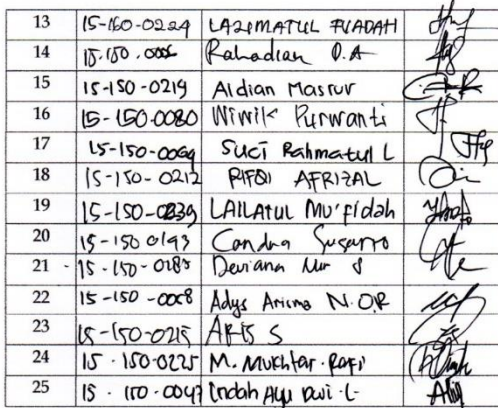 13 15-150-0224 LAZIMATUL FUADAH
14 15.150. Rahadian D.A
15 15-150-0219 Aldian Masrur
16 15-150-0080 Wiwik Purwanti
17 15-150-0069 Suci Rahmatul L
18 15-150-0212 RIFQI AFRIZAL
19 15-150-0239 LAILATUL MU'fidah
20 15-150 0193 Candra Susanto
21 15-150-0183 Deviana Nur S
22 15-150-0068 Adys Arisma N.O.R
23 15-150-0215 ARIS S
24 15.150-0225 M. Mukhtar. Rafi
25 15.150-0047 Indah Ayu Dwi.L